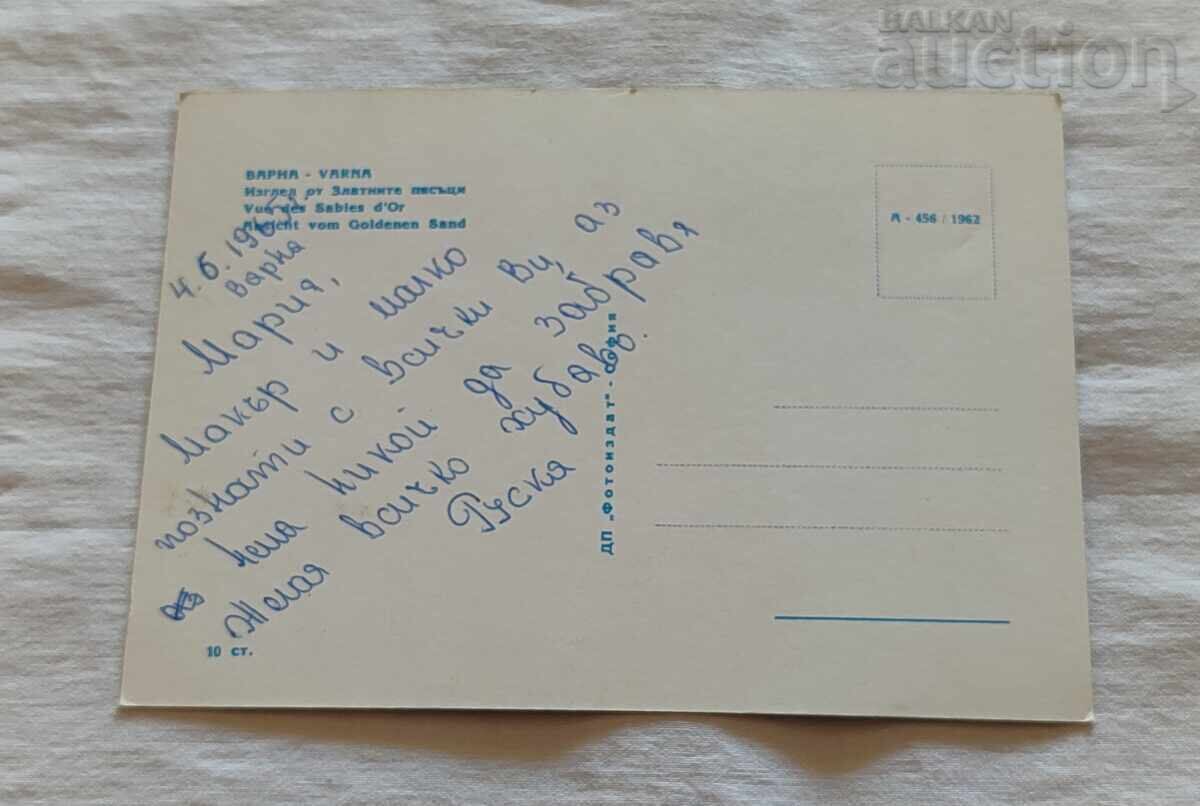 BALKAN
auction
ВАРНА - VARNA
Изглед от Златните пясъци
Vue des Sables d'Or
Ansicht vom Goldenen Sand
A - 456 / 1962
4. 6. 19
Варна
Мария,
Макър и малко
познати с всички ви, аз
няма никой да забравя
Желая всичко хубаво.
Руска
ДП „Фотоиздат" - София
10 ст.